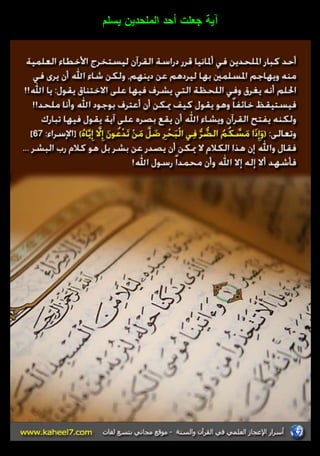 آية جعلت أحد الملحدين يسلم
أحد كبار الملحدين في ألمانيا قرر دراسة القرآن ليستخرج الأخطاء العلمية
منه ويهاجم المسلمين بها ليردهم عن دينهم. ولكن شاء الله أن يرى في
الحلم أنه يغرق وفي اللحظة التي يشرف فيها على الاختناق يقول: يا الله!!
فيستيقظ خائفاً وهو يقول كيف يمكن أن أعترف بوجود الله وأنا ملحد!!
ولكنه يفتح القرآن ويشاء الله أن يقع بصره على آية يقول فيها تبارك
وتعالى: (وَإِذَا مَسَّكُمُ الضُّرُّ فِي الْبَحْرِ ضَلَّ مَنْ تَدْعُونَ إِلَّا إِيَّاهُ) [الإسراء: 67]
فقال والله إن هذا الكلام لا يمكن أن يصدر عن بشر بل هو كلام رب البشر ...
فأشهد ألا إله إلا الله وأن محمداً رسول الله!
أسرار الإعجاز العلمي في القرآن والسنة - موقع مجاني بتسع لغات
www.kaheel7.com